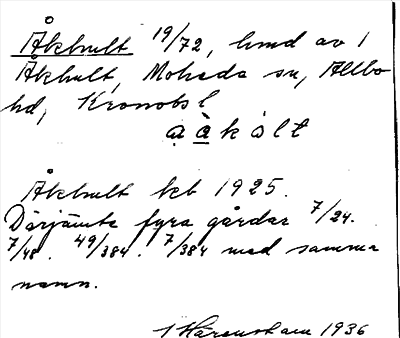 Åkhult 19/72, hmd av 1
Åkhult, Moheda sn, Allbo
hd, Kronobs l
a à k ó l t
Åkhult kb 1925.
Därjämte fyra gårdar 7/24.
7/48. 49/384. 7/384 med samma
namn.
1936